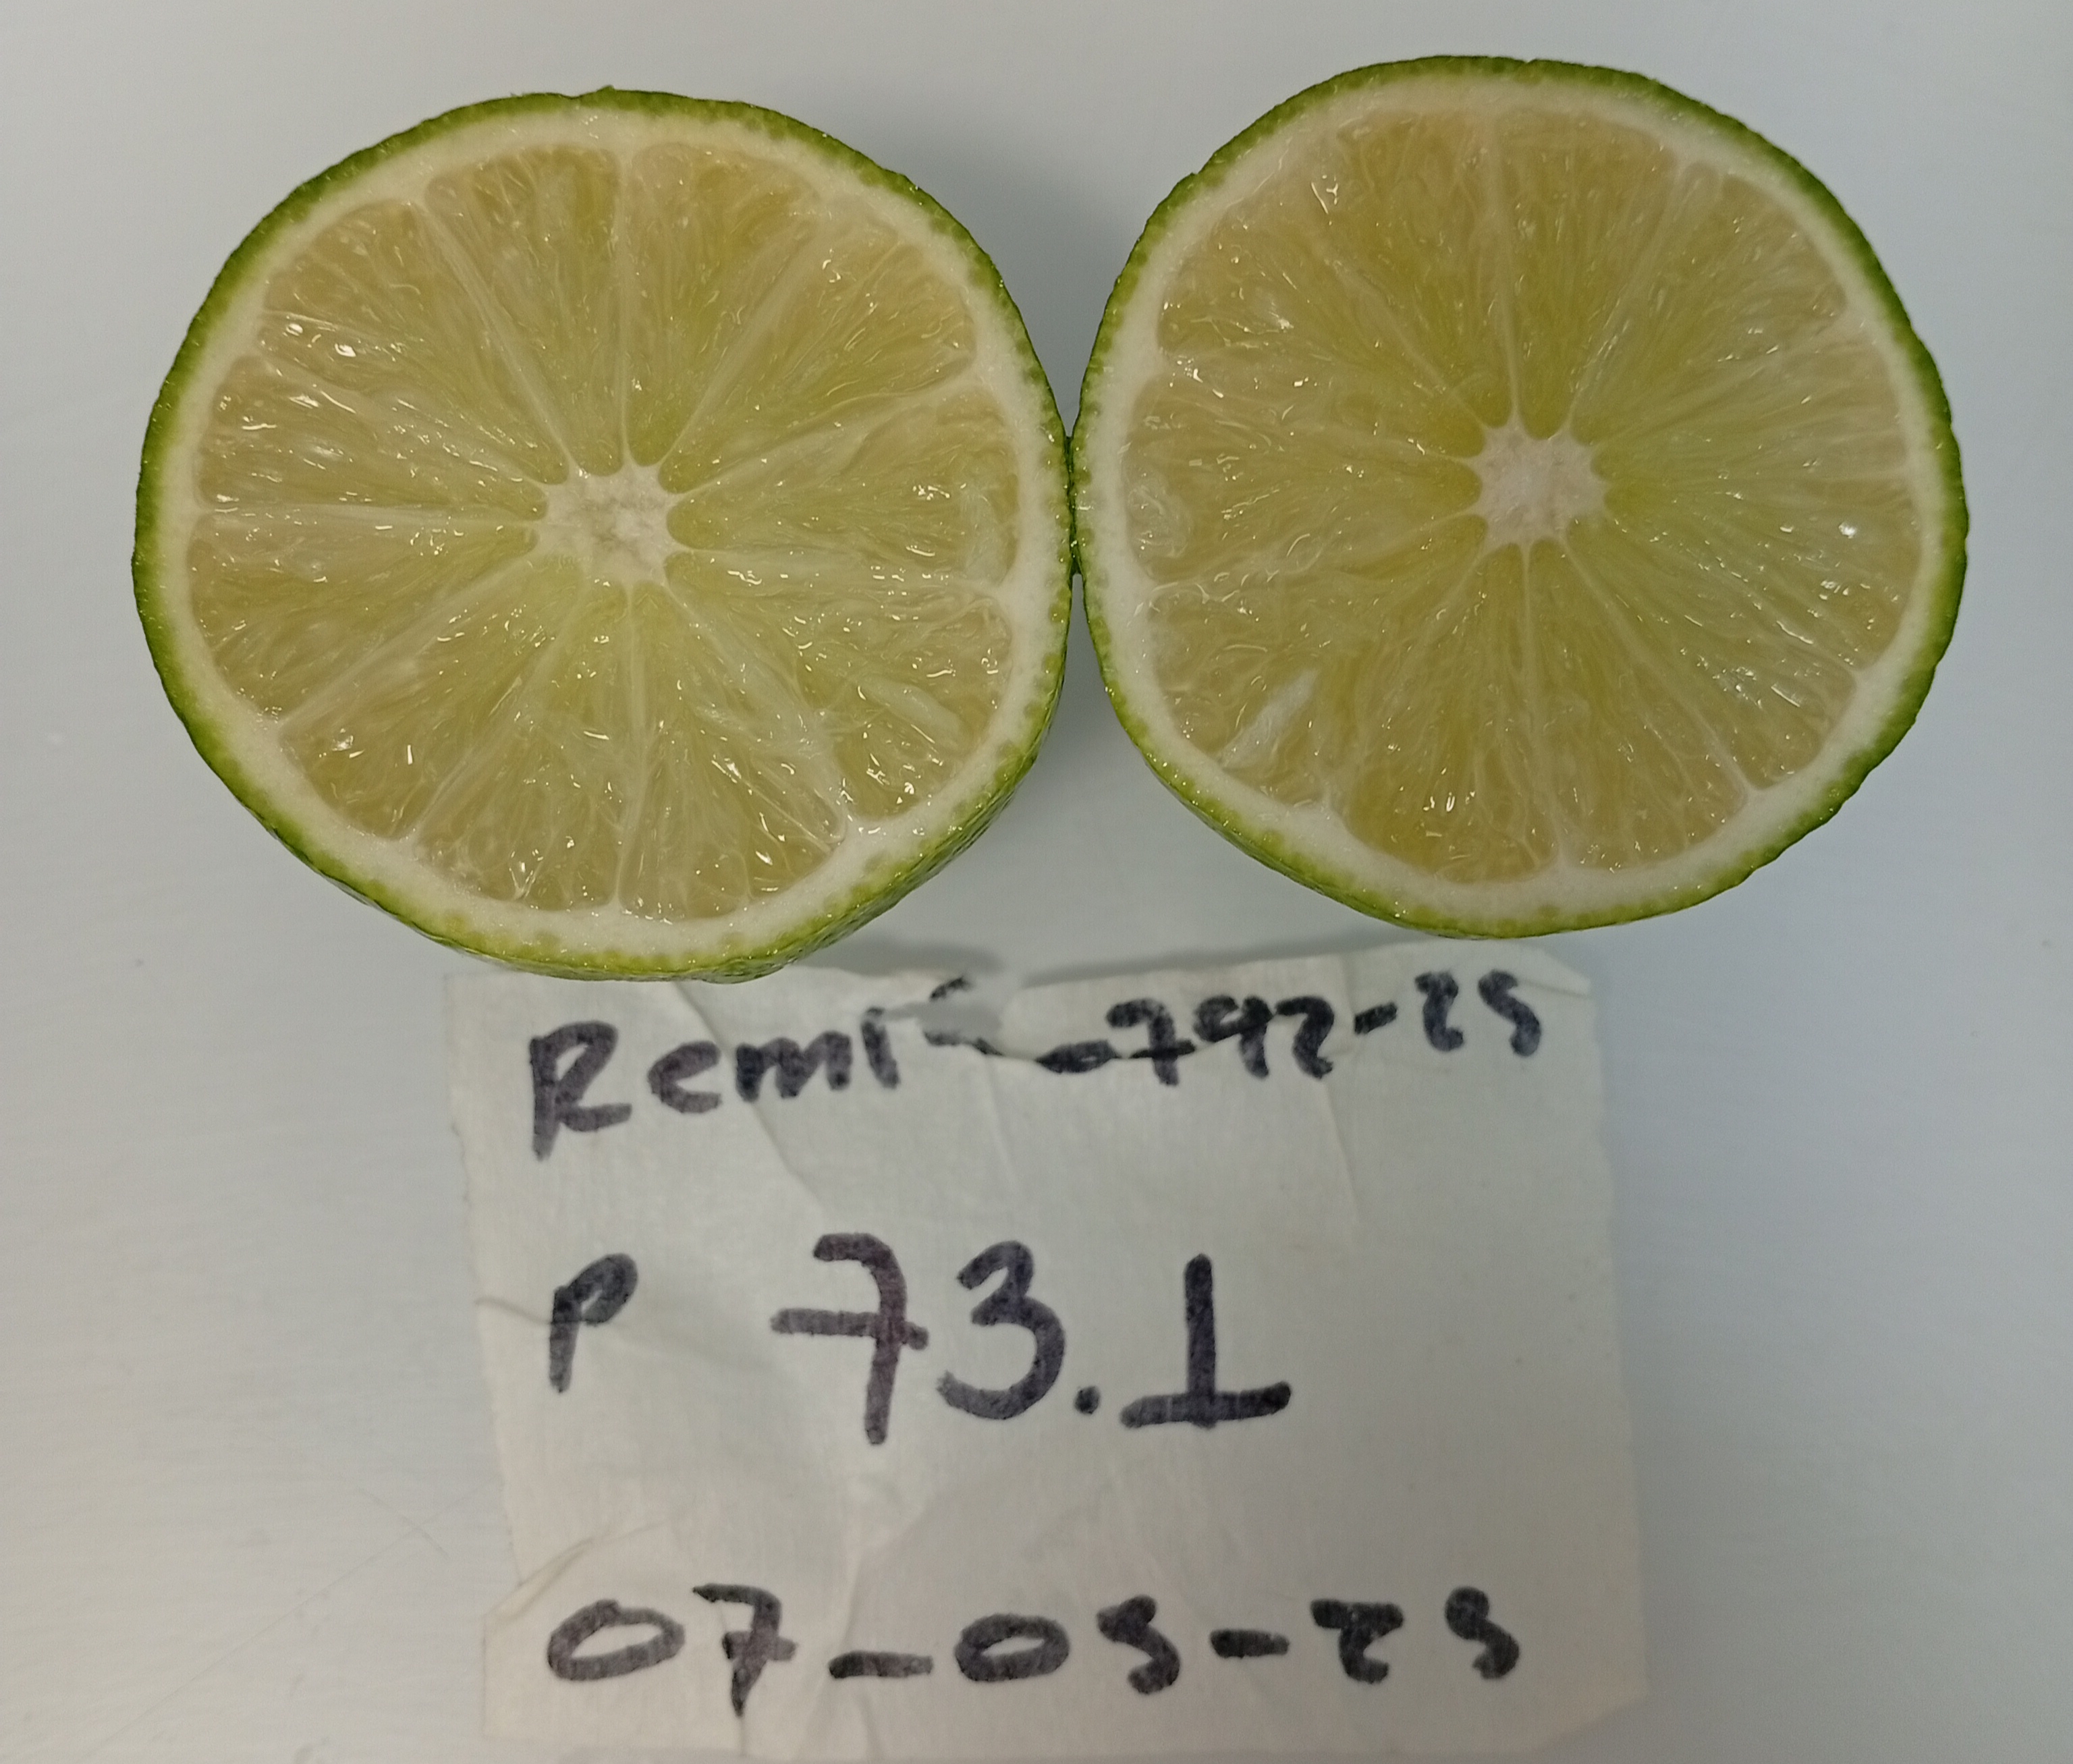 Remi-792-25
P 73.1
07-05-25